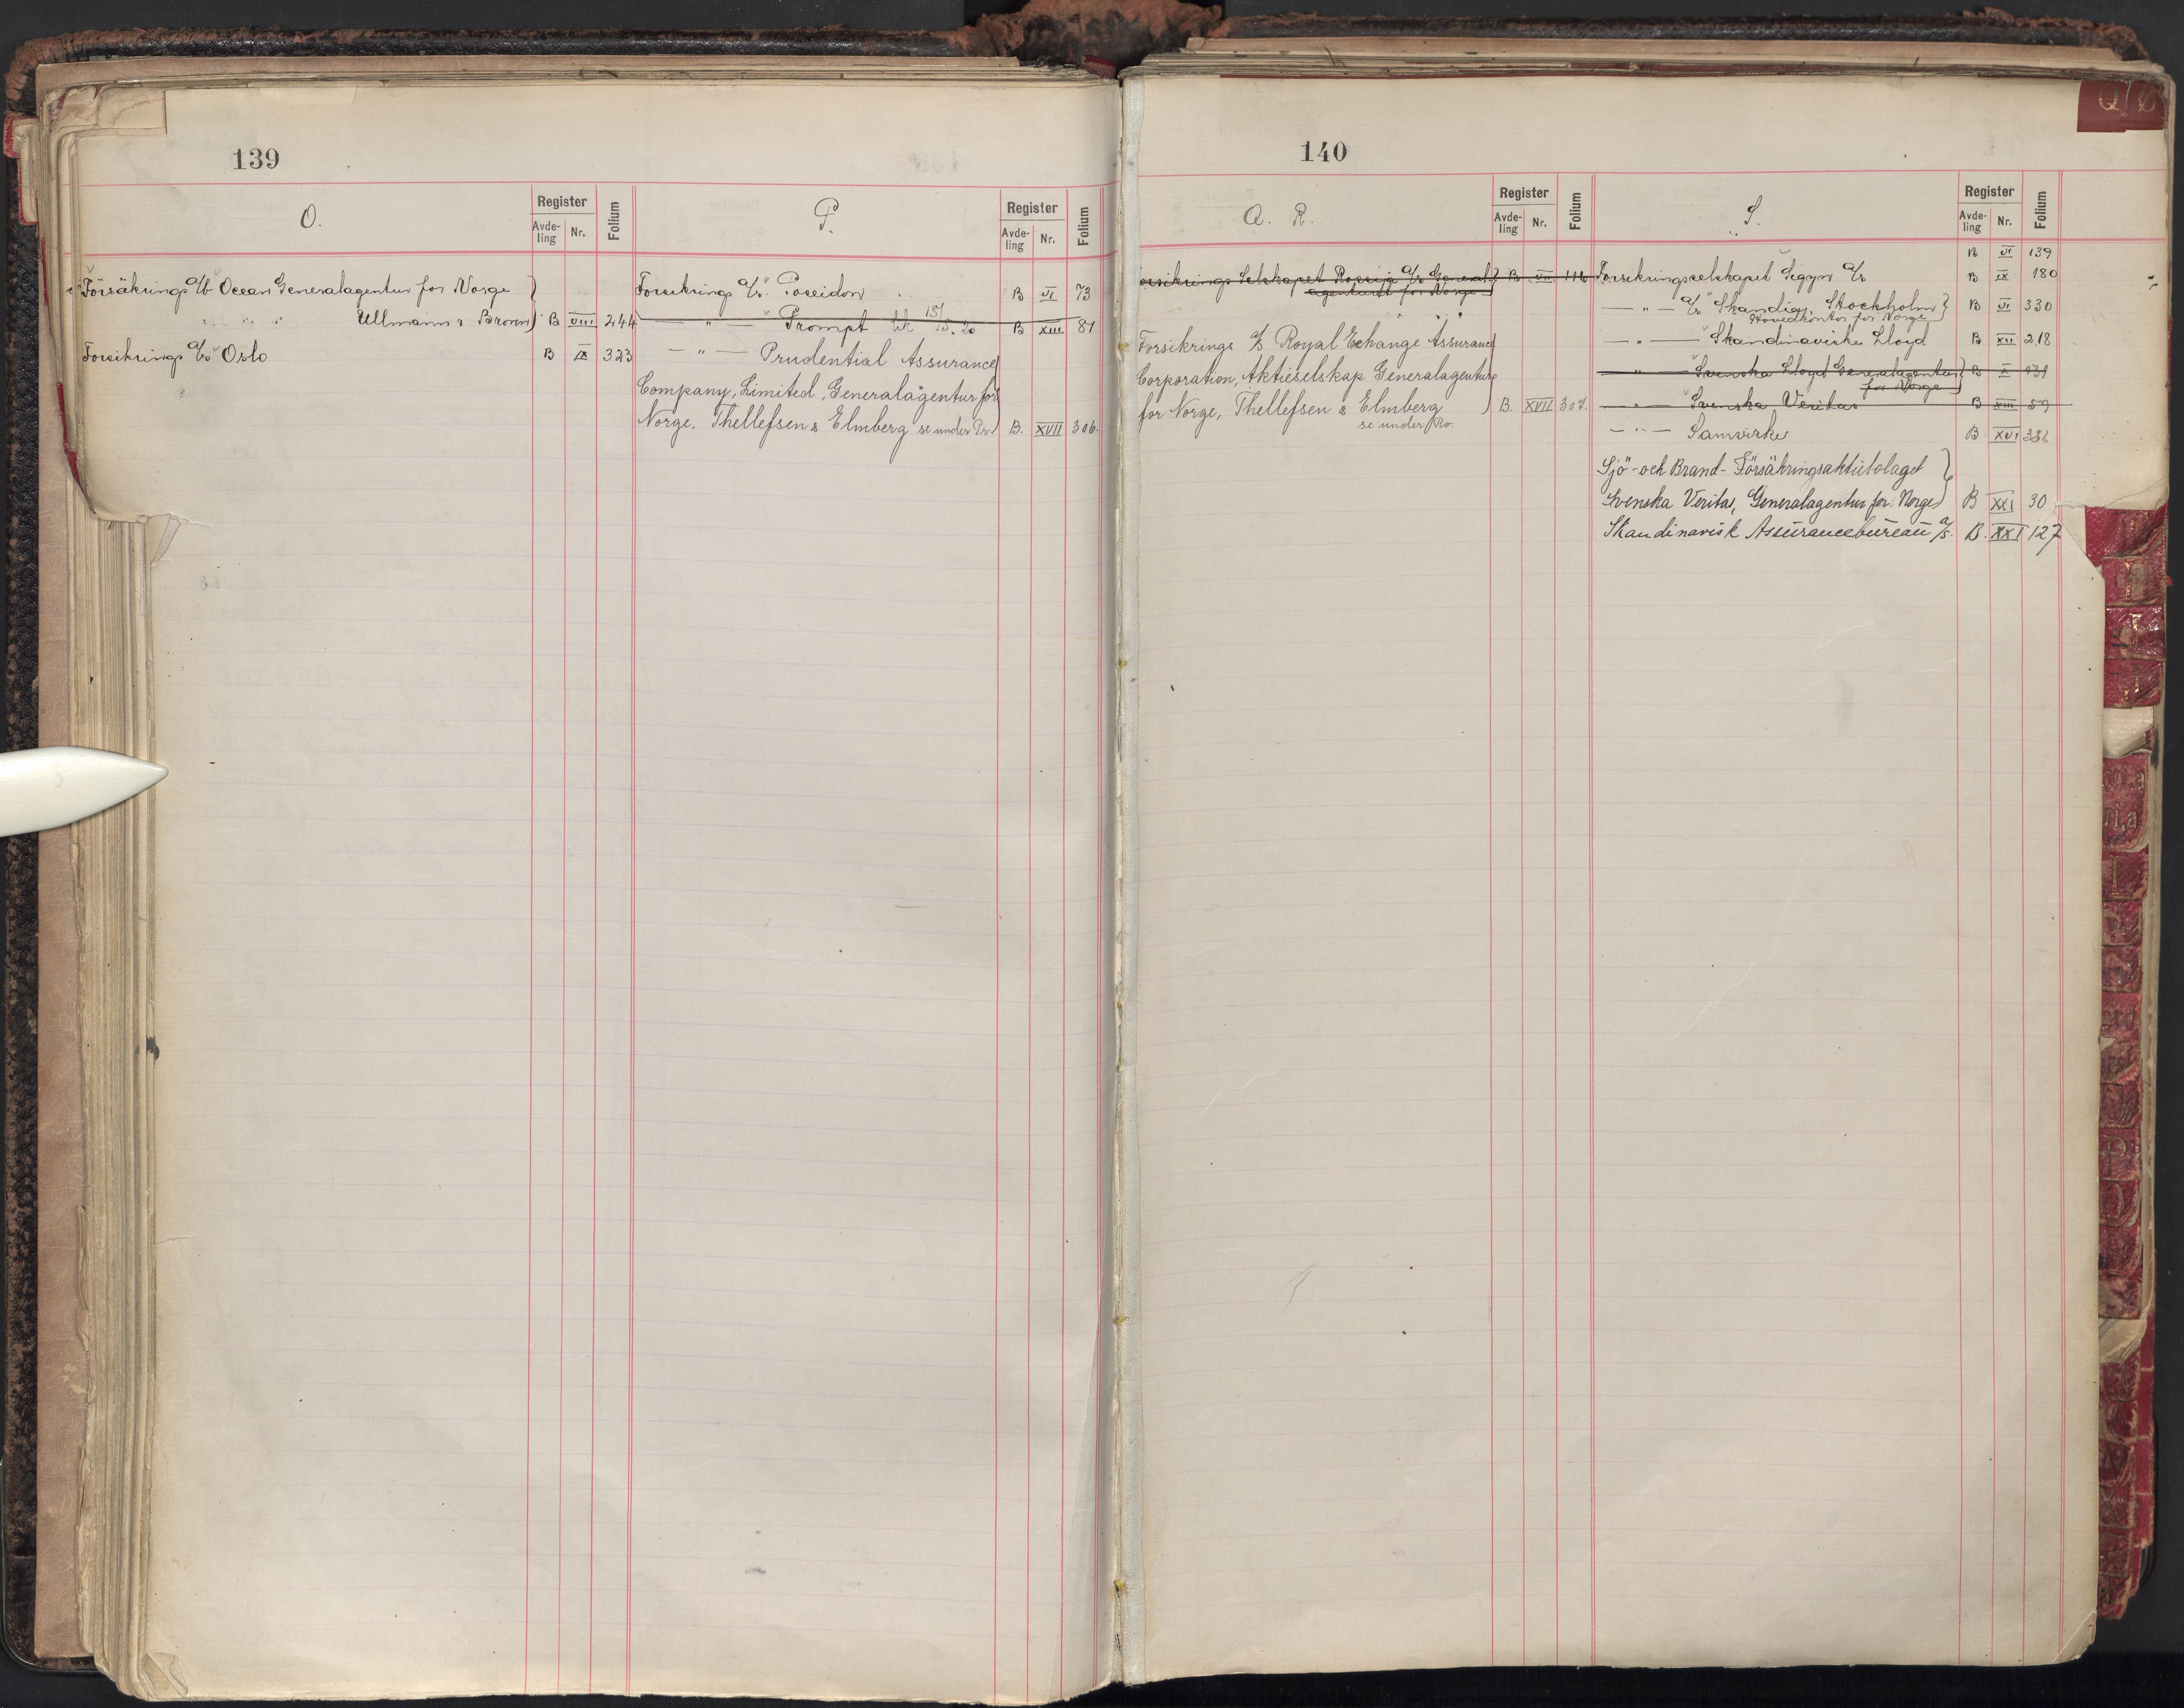 139
O.
Register
Avde-
ling
Nr.
Folium
P.
Register
Avde-
ling
Nr.
Folium
Försäkrings A/B Ocean Generalagentur for Norge
Ullmann & Bronn B VIII 244
Forsikrings A/S Oslo B IX 323
Forsikrings A/S Poseidon B VI 73
— " — Prompt 15/5.20 B XIII 81
— " — Prudential Assurance
Company, Limited, Generalagentur for
Norge. Thellefsen & Elmberg se under Pr. B. XVII 306.
140
Q. R.
Register
Avde-
ling
Nr.
Folium
S.
Register
Avde-
ling
Nr.
Folium
Forsikrings Selskapet Rossija A/S General B VII 116
agenturet for Norge
Forsikrings A/S Royal Exchange Assurance
Corporation, Aktieselskap Generalagentur
for Norge, Thellefsen & Elmberg B. XVII 307.
se under Ro.
B VI 139
Forsikringsselskapet Sigyn A/S B IX 180
— " — A/S Skandia, Stockholm B VI 330
Hovedkontor for Norge
— " — Skandinaviske Lloyd B XII 218
— " — Svenska Lloyd Generalagentur B X 131
for Norge
— " — Svenska Veritas B XIII 59
— " — Samvirke B XVI 386
Sjö- och Brand-Försäkringsaktiebolaget
Svenska Veritas, Generalagentur for Norge B XXI 30
Skandinavisk Assurancebureau A/S. B. XXI 127
Q